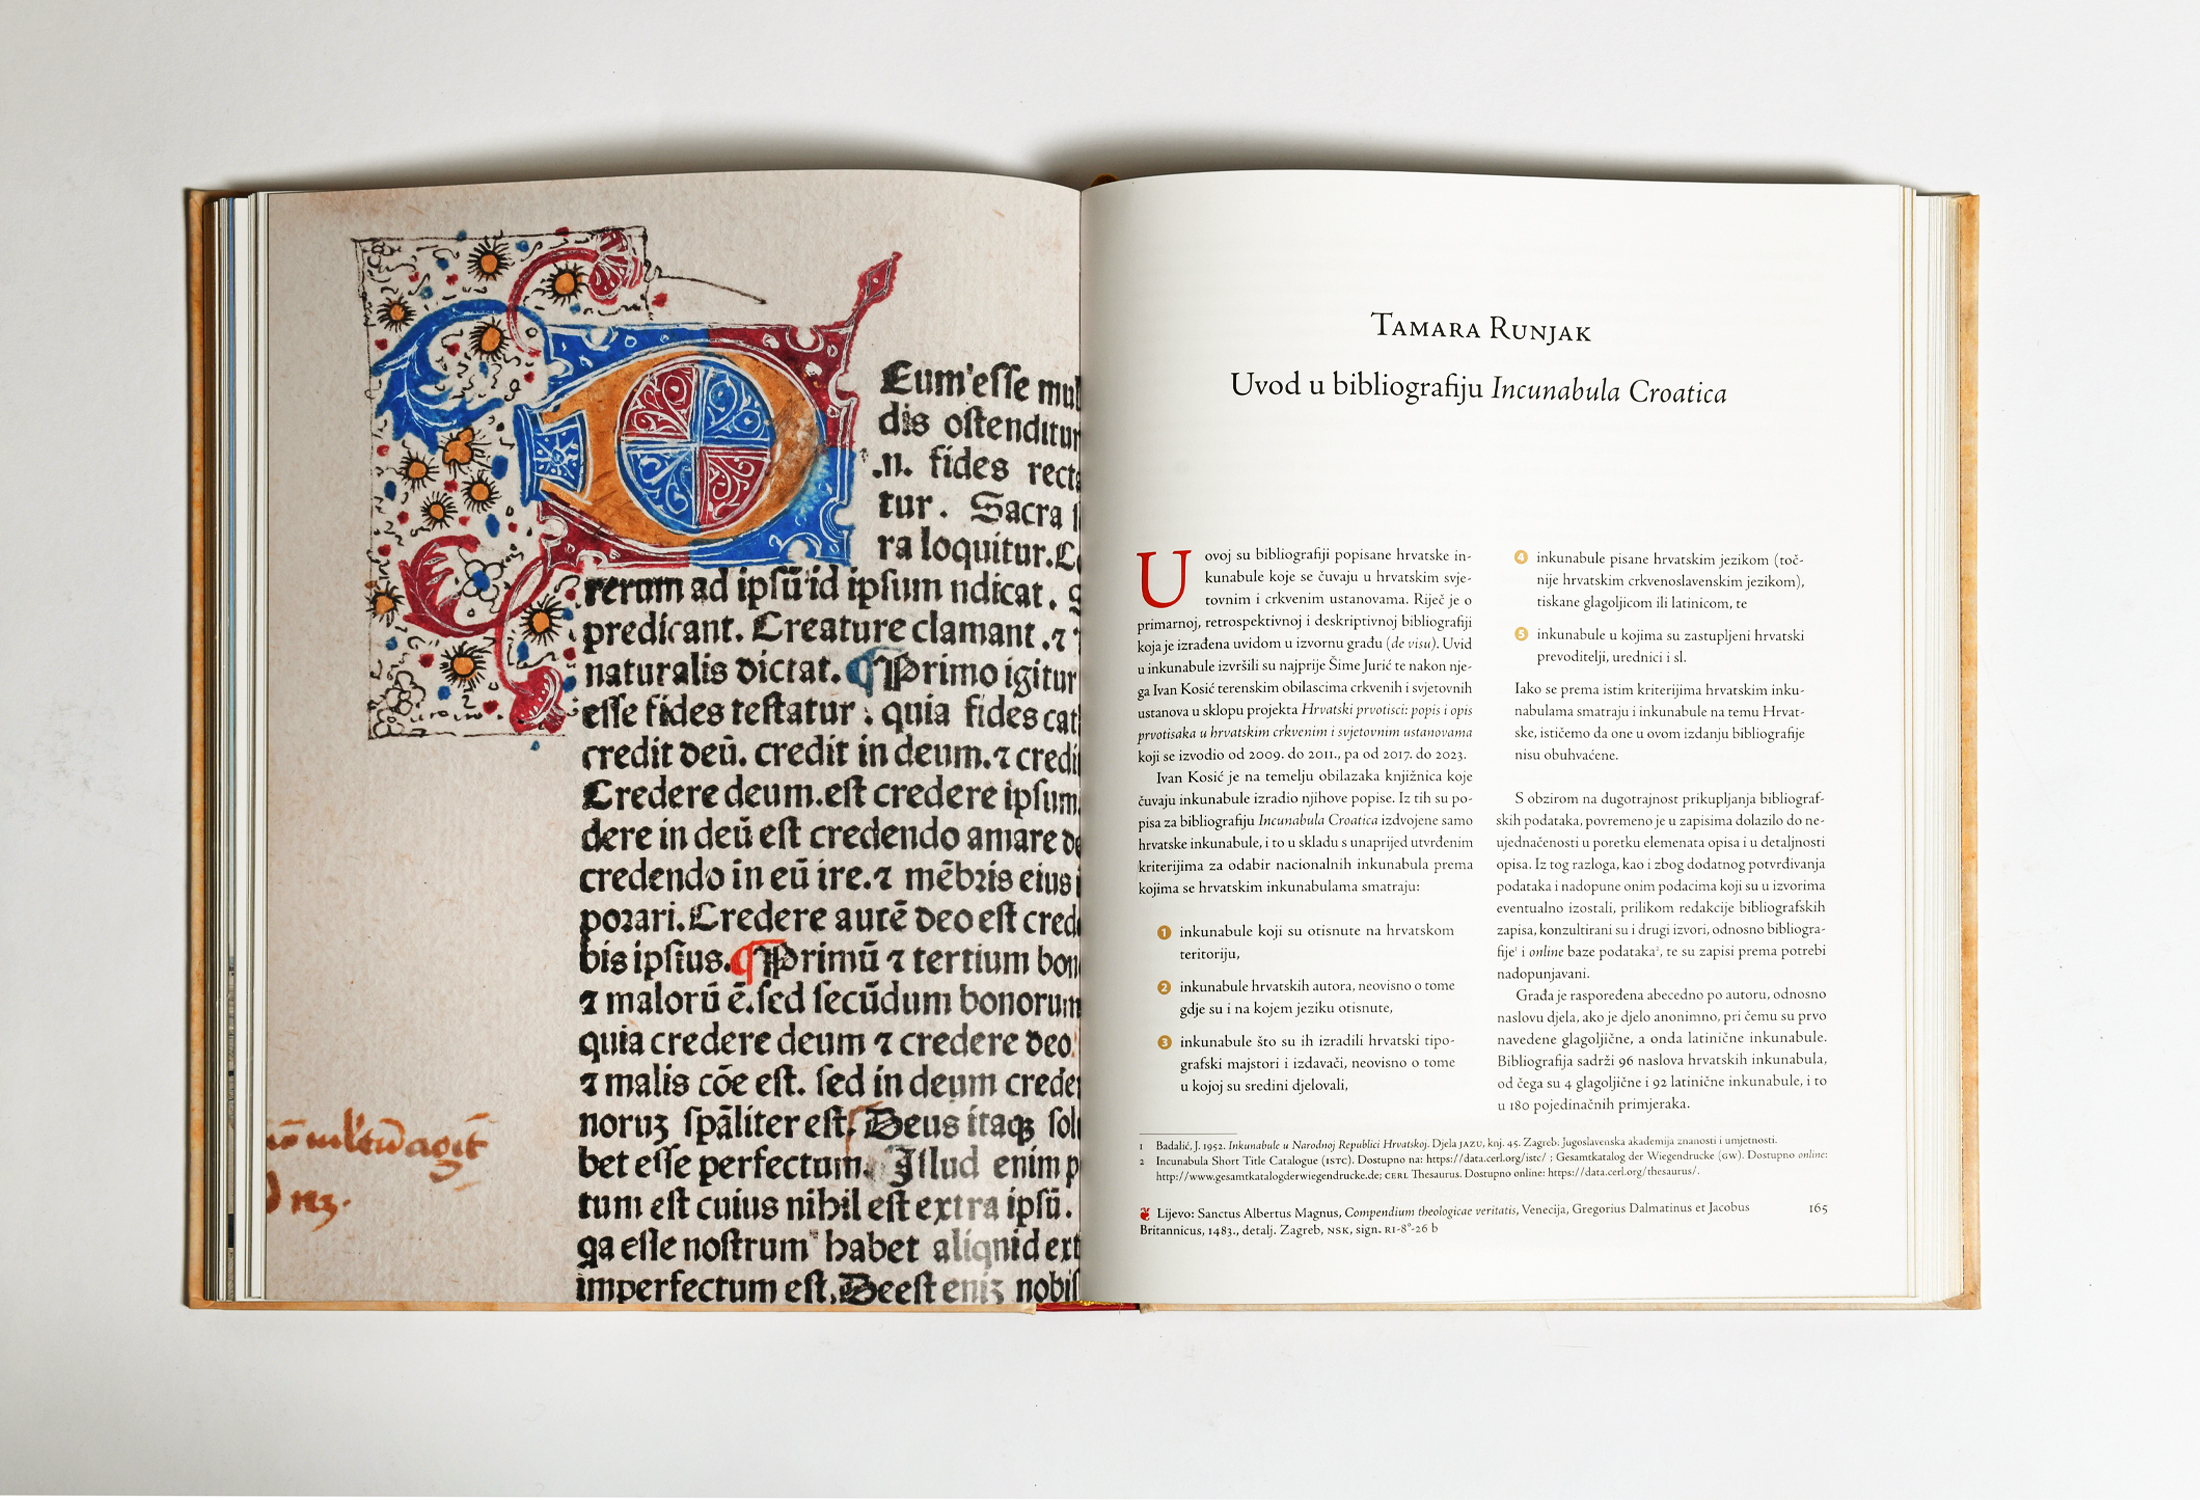 Eum'esse mul
dis ostenditur
.n. fides recte
tur. Sacra s
ra loquitur.
rerum ad ipsū id ipsum ndicat.
predicant. Creature clamant.⁊
naturalis dictat. ¶Primo igitur
esse fides testatur: quia fides cat
credit deū. credit in deum.⁊ credi
Credere deum.est credere ipsum
dere in deū est credendo amare de
credendo in eū ire.⁊ mēbꝛis eius i
poꝛari.Credere autē deo est cred
bis ipsius.¶Primū ⁊ tertium bon
⁊ maloꝛū ē.sed secūdum bonorum
quia credere deum ⁊ credere deo
⁊ malis cōe est. sed in deum crede
noruꝫ spāliter est. Deus itaqꝫ sol
bet esse perfectum. Illud enim p
tum est cuius nihil est extra ipsū.
ga esse nostrum habet aliqnid ext
imperfectum est.Deest eniꝫ nobis
TAMARA RUNJAK
Uvod u bibliografiju Incunabula Croatica
U ovoj su bibliografiji popisane hrvatske in-
kunabule koje se čuvaju u hrvatskim svje-
tovnim i crkvenim ustanovama. Riječ je o
primarnoj, retrospektivnoj i deskriptivnoj bibliografiji
koja je izrađena uvidom u izvornu građu (de visu). Uvid
u inkunabule izvršili su najprije Šime Jurić te nakon nje-
ga Ivan Kosić terenskim obilascima crkvenih i svjetovnih
ustanova u sklopu projekta Hrvatski prvotisci: popis i opis
prvotisaka u hrvatskim crkvenim i svjetovnim ustanovama
koji se izvodio od 2009. do 2011., pa od 2017. do 2023.
Ivan Kosić je na temelju obilazaka knjižnica koje
čuvaju inkunabule izradio njihove popise. Iz tih su po-
pisa za bibliografiju Incunabula Croatica izdvojene samo
hrvatske inkunabule, i to u skladu s unaprijed utvrđenim
kriterijima za odabir nacionalnih inkunabula prema
kojima se hrvatskim inkunabulama smatraju:
1 inkunabule koji su otisnute na hrvatskom
teritoriju,
2 inkunabule hrvatskih autora, neovisno o tome
gdje su i na kojem jeziku otisnute,
3 inkunabule što su ih izradili hrvatski tipo-
grafski majstori i izdavači, neovisno o tome
u kojoj su sredini djelovali,
4 inkunabule pisane hrvatskim jezikom (toč-
nije hrvatskim crkvenoslavenskim jezikom),
tiskane glagoljicom ili latinicom, te
5 inkunabule u kojima su zastupljeni hrvatski
prevoditelji, urednici i sl.
Iako se prema istim kriterijima hrvatskim inku-
nabulama smatraju i inkunabule na temu Hrvat-
ske, ističemo da one u ovom izdanju bibliografije
nisu obuhvaćene.
S obzirom na dugotrajnost prikupljanja bibliograf-
skih podataka, povremeno je u zapisima dolazilo do ne-
ujednačenosti u poretku elemenata opisa i u detaljnosti
opisa. Iz tog razloga, kao i zbog dodatnog potvrđivanja
podataka i nadopune onim podacima koji su u izvorima
eventualno izostali, prilikom redakcije bibliografskih
zapisa, konzultirani su i drugi izvori, odnosno bibliogra-
fije¹ i online baze podataka², te su zapisi prema potrebi
nadopunjavani.
Građa je raspoređena abecedno po autoru, odnosno
naslovu djela, ako je djelo anonimno, pri čemu su prvo
navedene glagoljične, a onda latinične inkunabule.
Bibliografija sadrži 96 naslova hrvatskih inkunabula,
od čega su 4 glagoljične i 92 latinične inkunabule, i to
u 180 pojedinačnih primjeraka.
1 Badalić, J. 1952. Inkunabule u Narodnoj Republici Hrvatskoj. Djela JAZU, knj. 45. Zagreb: Jugoslavenska akademija znanosti i umjetnosti.
2 Incunabula Short Title Catalogue (ISTC). Dostupno na: https://data.cerl.org/istc/ ; Gesamtkatalog der Wiegendrucke (GW). Dostupno online:
http://www.gesamtkatalogderwiegendrucke.de; CERL Thesaurus. Dostupno online: https://data.cerl.org/thesaurus/.
Lijevo: Sanctus Albertus Magnus, Compendium theologicae veritatis, Venecija, Gregorius Dalmatinus et Jacobus
Britannicus, 1483., detalj. Zagreb, NSK, sign. RI-8°-26 b
165